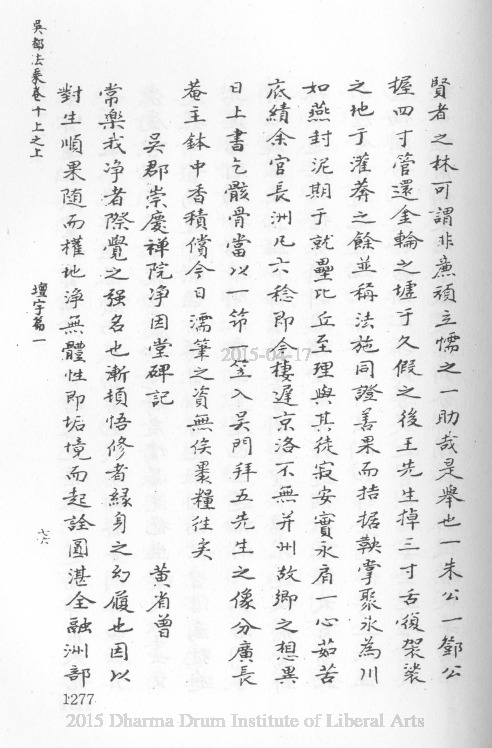 賢者之林可謂非廉頑立懦之一助哉是舉也一朱公一鄧公
握四寸管還金輪之墟于久假之後王先生掉三寸舌復架裟
之地于灌莽之餘並稱法施同證善果而拮据鞅掌聚氷為川
如燕封泥期于就壘比丘至理與其徒寂安實永肩一心茹苦
底績余官長洲凡六稔即令棲遲京洛不無并州故鄉之想異
日上書乞骸骨當以一笻一笠入吳門拜五先生之像分廣長
菴主鉢中香積償今日濡筆之資無俟褁糧往矣
吳郡崇慶禅院净因堂碑記 黃省曾
常樂我净者際覺之强名也漸頓悟修者縁身之幻履也因以
對生順果随而權地浄無體性即垢境而起詮圎湛全融洲部
吳都法乘卷十上之上 壇宇篇一 六六
1277
2015-04-17
2015 Dharma Drum Institute of Liberal Arts